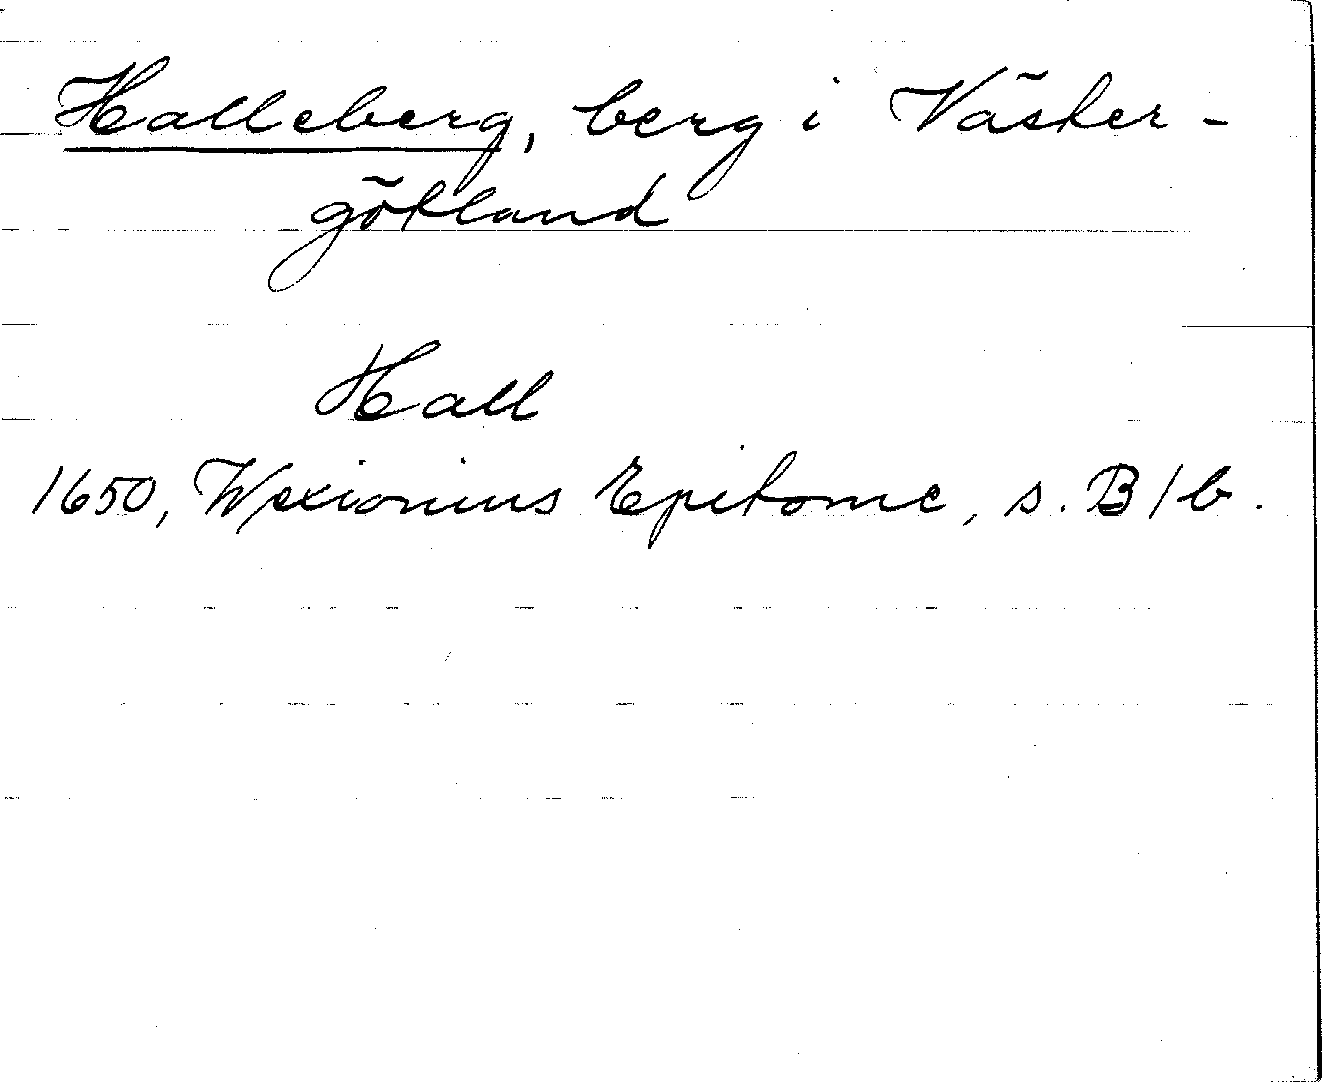 Halleberg, berg i Väster-
götland
Hall
1650, Wexionius Epitome, s. B1b.